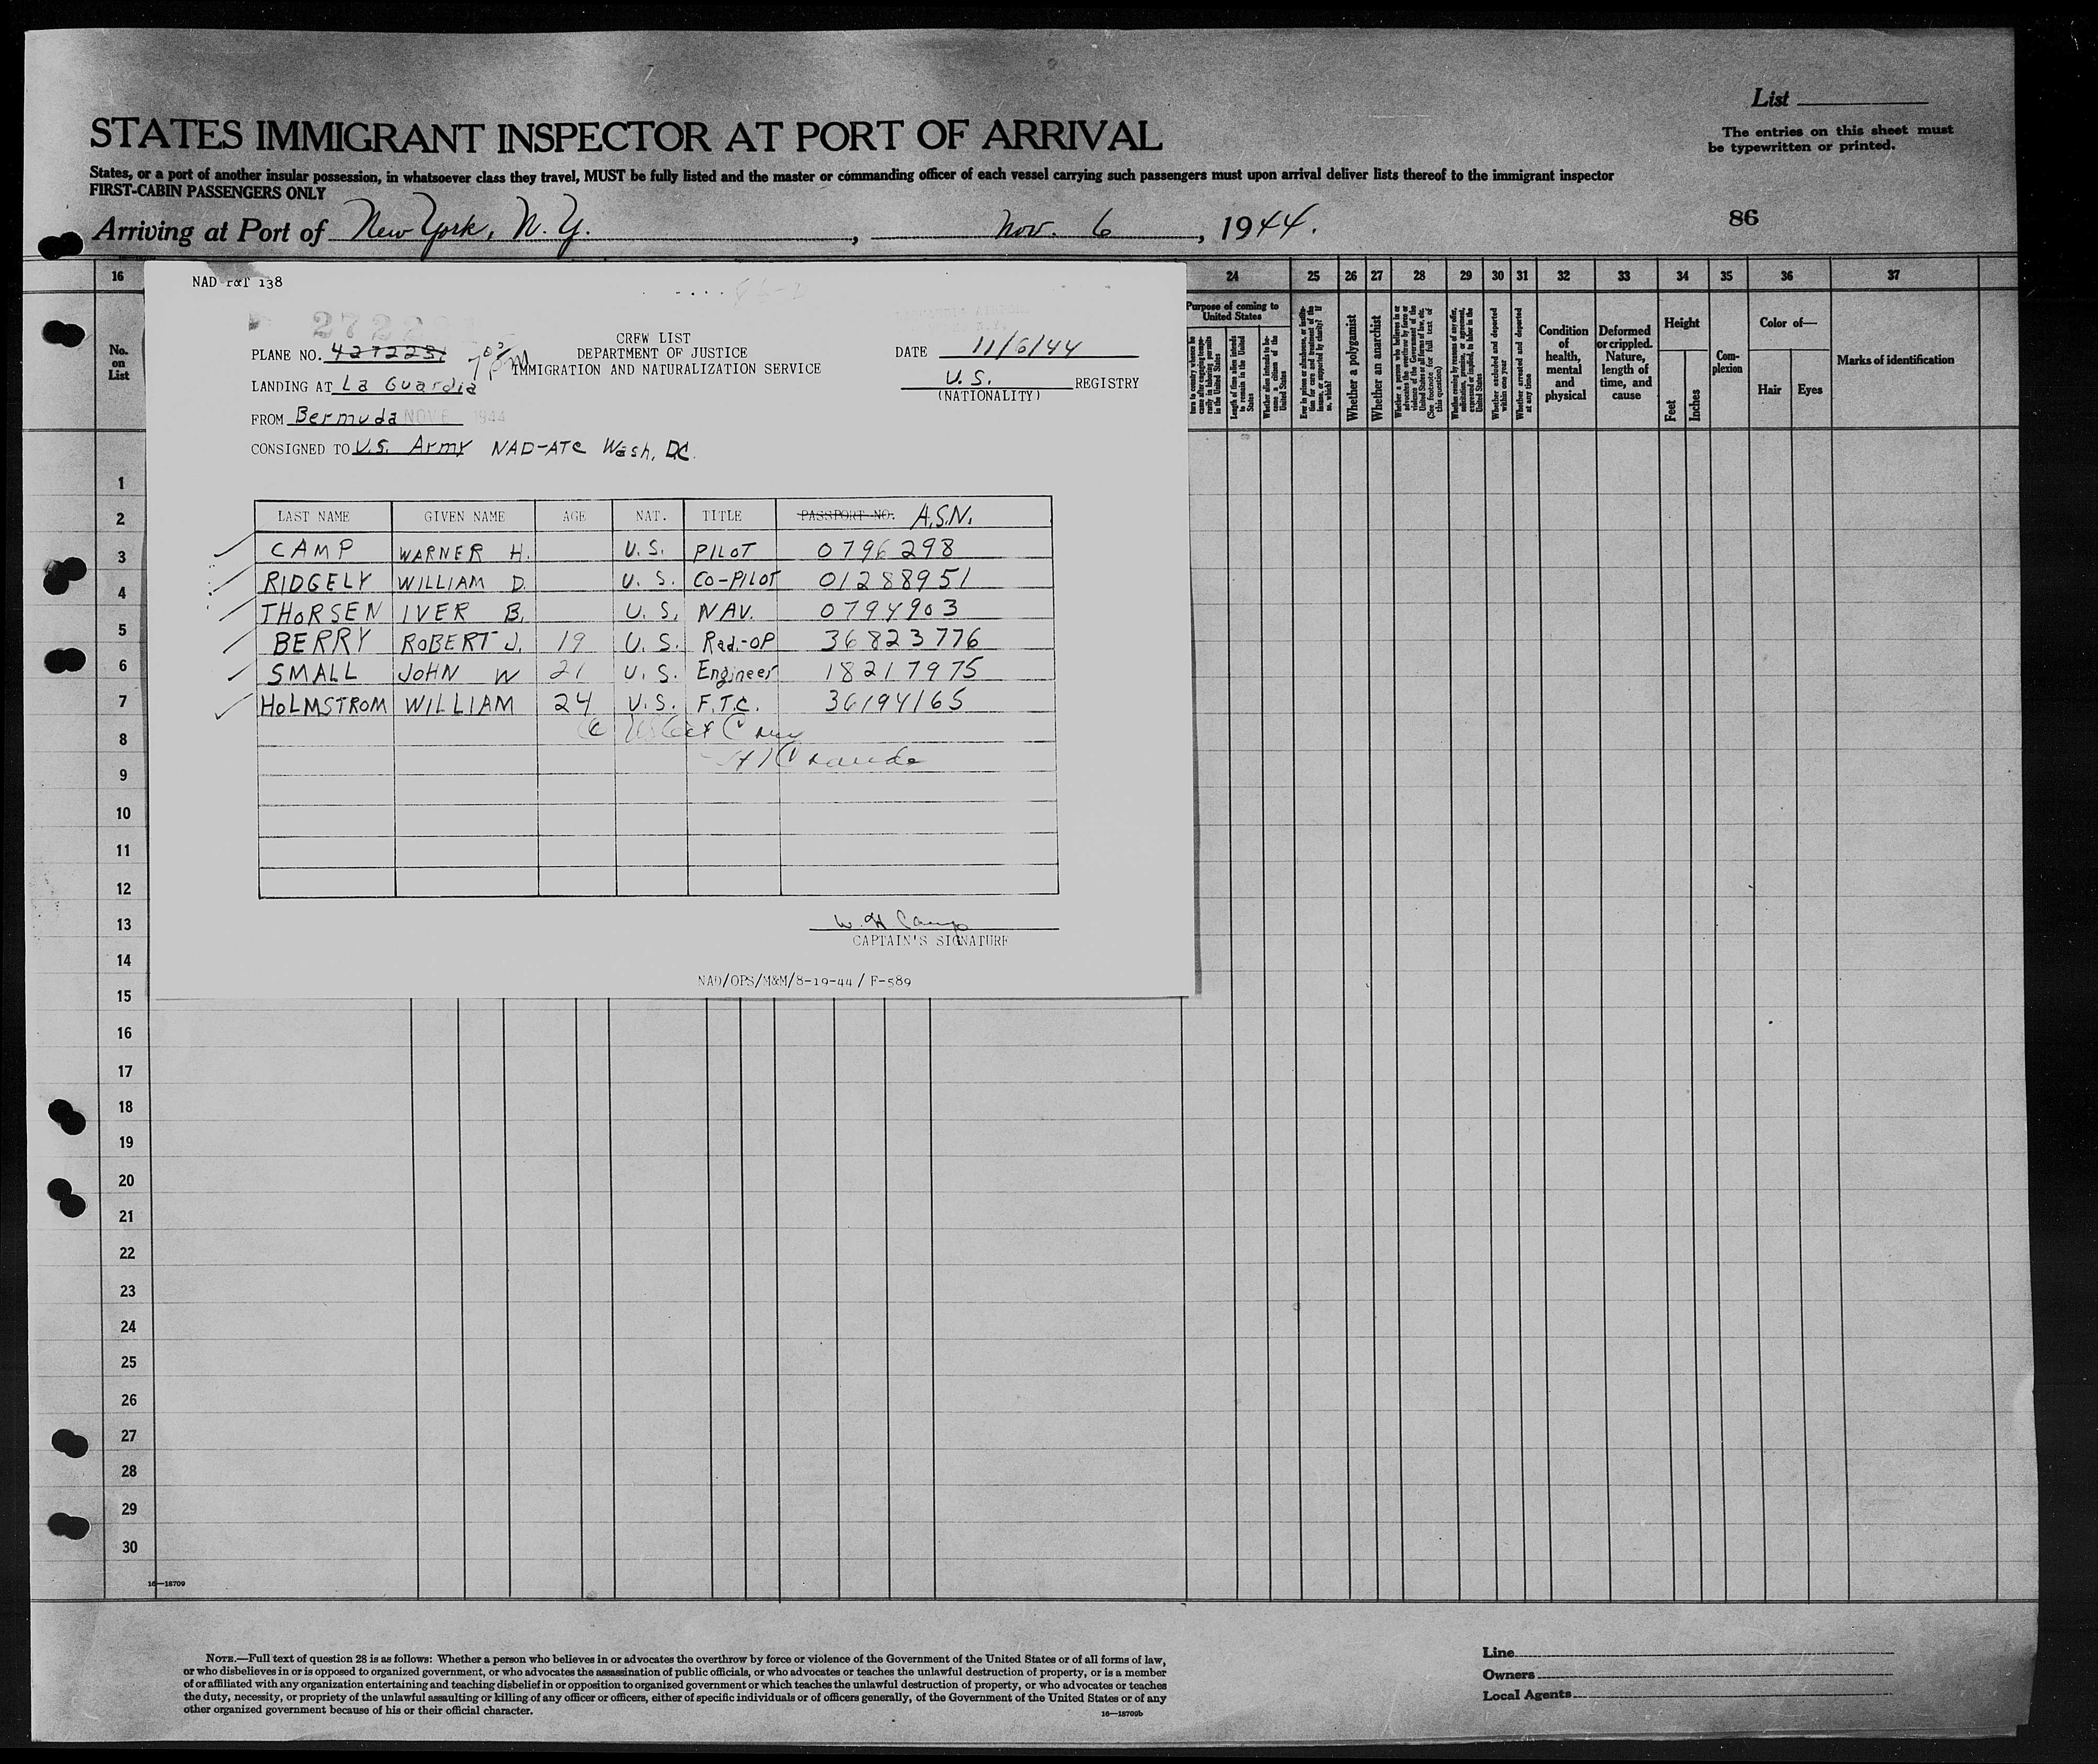 List
The entries on this sheet must
be typewritten or printed.
STATES IMMIGRANT INSPECTOR AT PORT OF ARRIVAL
States, or a port of another insular possession, in whatsoever class they travel, MUST be fully listed and the master or commanding officer of each vessel carrying such passengers must upon arrival deliver lists thereof to the immigrant inspector
FIRST-CABIN PASSENGERS ONLY
Arriving at Port of New York, N. Y. , Nov. 6 , 1944.
86
16 24 25 26 27 28 29 30 31 32 33 34 35 36 37
No.
on
List
NAD r&T 138
CREW LIST
DEPARTMENT OF JUSTICE
IMMIGRATION AND NATURALIZATION SERVICE
PLANE NO.
DATE 11/6/44
LANDING AT La Guardia
U.S. REGISTRY
(NATIONALITY)
FROM Bermuda
CONSIGNED TO U.S. Army NAD-ATC Wash, D.C.
LAST NAME GIVEN NAME AGE NAT. TITLE PASSPORT NO. A.S.N.
CAMP WARNER H. U.S. PILOT 0796298
RIDGELY WILLIAM D. U.S. CO-PILOT 01288951
THORSEN IVER B. U.S. NAV. 0794903
BERRY ROBERT J. 19 U.S. Rad.-OP 36823776
SMALL JOHN W 21 U.S. Engineer 18217975
HOLMSTROM WILLIAM 24 U.S. F.T.C. 36194165
W. H Camp
CAPTAIN'S SIGNATURE
NAD/OPS/M&M/8-19-44 / F-589
Purpose of coming to
United States
Whether a polygamist
Whether an anarchist
Whether excluded and deported
within one year
Whether arrested and deported
at any time
Condition
of
health,
mental
and
physical
Deformed
or crippled.
Nature,
length of
time, and
cause
Height
Feet
Inches
Com-
plexion
Color of—
Hair
Eyes
Marks of identification
1
2
3
4
5
6
7
8
9
10
11
12
13
14
15
16
17
18
19
20
21
22
23
24
25
26
27
28
29
30
16—18709
NOTE.—Full text of question 28 is as follows: Whether a person who believes in or advocates the overthrow by force or violence of the Government of the United States or of all forms of law,
or who disbelieves in or is opposed to organized government, or who advocates the assassination of public officials, or who advocates or teaches the unlawful destruction of property, or is a member
of or affiliated with any organization entertaining and teaching disbelief in or opposition to organized government or which teaches the unlawful destruction of property, or who advocates or teaches
the duty, necessity, or propriety of the unlawful assaulting or killing of any officer or officers, either of specific individuals or of officers generally, of the Government of the United States or of any
other organized government because of his or their official character.
16—18709b
Line
Owners
Local Agents